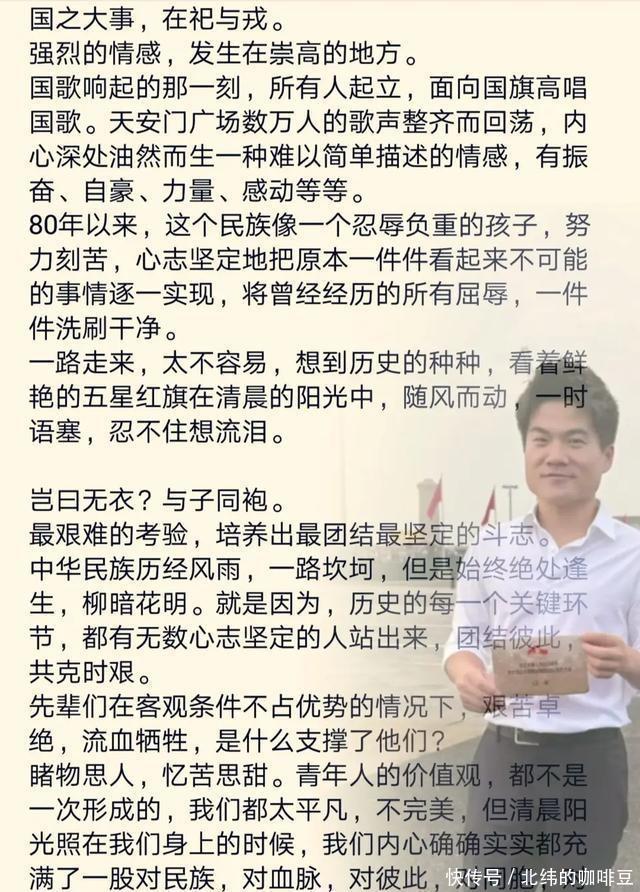 国之大事，在祀与戎。
强烈的情感，发生在崇高的地方。
国歌响起的那一刻，所有人起立，面向国旗高唱
国歌。天安门广场数万人的歌声整齐而回荡，内
心深处油然而生一种难以简单描述的情感，有振
奋、自豪、力量、感动等等。
80年以来，这个民族像一个忍辱负重的孩子，努
力刻苦，心志坚定地把原本一件件看起来不可能
的事情逐一实现，将曾经经历的所有屈辱，一件
件洗刷干净。
一路走来，太不容易，想到历史的种种，看着鲜
艳的五星红旗在清晨的阳光中，随风而动，一时
语塞，忍不住想流泪。
岂曰无衣？与子同袍。
最艰难的考验，培养出最团结最坚定的斗志。
中华民族历经风雨，一路坎坷，但是始终绝处逢
生，柳暗花明。就是因为，历史的每一个关键环
节，都有无数心志坚定的人站出来，团结彼此，
共克时艰。
先辈们在客观条件不占优势的情况下，艰苦卓
绝，流血牺牲，是什么支撑了他们？
睹物思人，忆苦思甜。青年人的价值观，都不是
一次形成的，我们都太平凡，不完美，但清晨阳
光照在我们身上的时候，我们内心确确实实都充
满了一股对民族，对血脉，对彼此，
快传号/北纬的咖啡豆